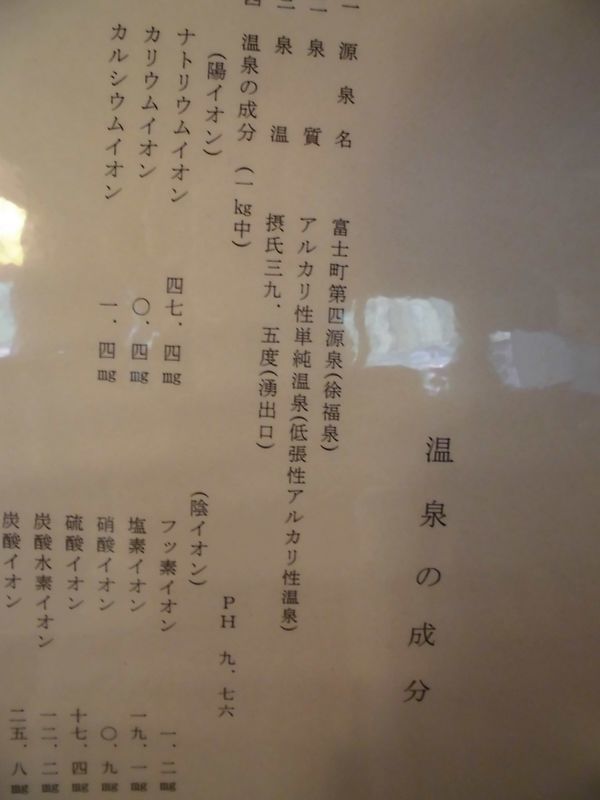 温泉の成分
一 源泉名 富士町第四源泉(徐福泉)
二 泉質 アルカリ性単純温泉(低張性アルカリ性温泉)
三 泉温 摂氏三九．五度(湧出口)
PH 九．七六
四 温泉の成分 (一kg中)
(陽イオン)
ナトリウムイオン 四七．四mg
カリウムイオン 〇．四mg
カルシウムイオン 一．四mg
(陰イオン)
フッ素イオン 一．二mg
塩素イオン 一九．一mg
硝酸イオン 〇．九mg
硫酸イオン 十七．四mg
炭酸水素イオン 一二．二mg
炭酸イオン 二五．八mg